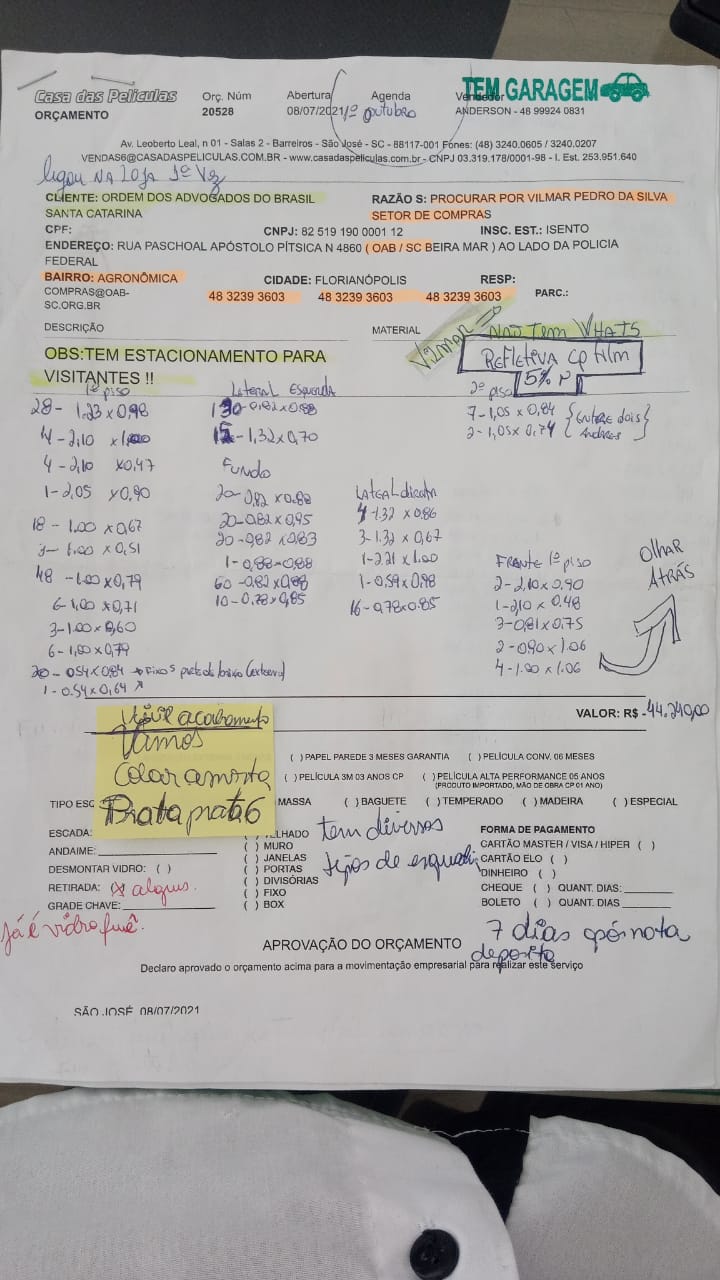 Casa das Películas
ORÇAMENTO
Orç. Núm
20528
Abertura
08/07/2021
Agenda
1º outubro
Vendedor
ANDERSON - 48 99924 0831
TEM GARAGEM
Av. Leoberto Leal, n 01 - Salas 2 - Barreiros - São José - SC - 88117-001 Fones: (48) 3240.0605 / 3240.0207
VENDAS6@CASADASPELICULAS.COM.BR - www.casadaspeliculas.com.br - CNPJ 03.319.178/0001-98 - I. Est. 253.951.640
ligou NA LOJA 1ª Vez
CLIENTE: ORDEM DOS ADVOGADOS DO BRASIL
SANTA CATARINA
RAZÃO S: PROCURAR POR VILMAR PEDRO DA SILVA
SETOR DE COMPRAS
CPF:
CNPJ: 82 519 190 0001 12
INSC. EST.: ISENTO
ENDEREÇO: RUA PASCHOAL APÓSTOLO PÍTSICA N 4860 ( OAB / SC BEIRA MAR ) AO LADO DA POLICIA
FEDERAL
BAIRRO: AGRONÔMICA
CIDADE: FLORIANÓPOLIS
RESP:
COMPRAS@OAB-
SC.ORG.BR
48 3239 3603 48 3239 3603 48 3239 3603
PARC.:
DESCRIÇÃO
MATERIAL
Vilmar
NÃO TEM WHATS
OBS:TEM ESTACIONAMENTO PARA
VISITANTES !!
REFLETIVA CP FILM
5% P
1º piso
28 - 1.23 x 0,98
4 - 2,10 x 1,00
4 - 2,10 x 0,47
1 - 2,05 x 0,90
18 - 1.00 x 0,67
3 - 1.00 x 0,51
48 - 1.00 x 0,79
6 - 1,00 x 0,71
3 - 1.00 x 0,60
6 - 1,00 x 0,79
20 - 0.54 x 0,84 → Fixos parte de baixo (externo)
1 - 0.54 x 0,64
Lateral Esquerda
130 - 0,82 x 0,88
15 - 1,32 x 0,70
Fundo
20 - 0,82 x 0,88
20 - 0,82 x 0,95
20 - 0,82 x 0,83
1 - 0,88 x 0,88
60 - 0,82 x 0,88
10 - 0,78 x 0,85
Lateral direita
4 - 1.32 x 0,86
3 - 1.32 x 0,67
1 - 2.21 x 1.00
1 - 0.59 x 0.98
16 - 0,78 x 0.85
2º piso
7 - 1,05 x 0,84
2 - 1,05 x 0,74
ENTRE dois
Andares
FRENTE 1º piso
2 - 2,10 x 0,90
1 - 2,10 x 0.48
3 - 0,81 x 0.75
2 - 0.90 x 1.06
4 - 1.00 x 1.06
Olhar
ATRÁS
VALOR: R$ - 44.240,00
acabamento
Vamos
Colar amostra
Prata prata 6
( ) PAPEL PAREDE 3 MESES GARANTIA ( ) PELÍCULA CONV. 06 MESES
( ) PELÍCULA 3M 03 ANOS CP ( ) PELÍCULA ALTA PERFORMANCE 05 ANOS
(PRODUTO IMPORTADO, MÃO DE OBRA CP 01 ANO)
TIPO ESQ
MASSA ( ) BAGUETE ( ) TEMPERADO ( ) MADEIRA ( ) ESPECIAL
ESCADA:
ANDAIME:
DESMONTAR VIDRO: ( )
RETIRADA: alguns.
GRADE CHAVE:
Já é vidro fumê.
LHADO
( ) MURO
( ) JANELAS
( ) PORTAS
( ) DIVISÓRIAS
( ) FIXO
( ) BOX
tem diversos
tipos de esquadri
FORMA DE PAGAMENTO
CARTÃO MASTER / VISA / HIPER ( )
CARTÃO ELO ( )
DINHEIRO ( )
CHEQUE ( ) QUANT. DIAS:
BOLETO ( ) QUANT. DIAS
7 dias após nota
deposito
APROVAÇÃO DO ORÇAMENTO
Declaro aprovado o orçamento acima para a movimentação empresarial para realizar este serviço
SÃO JOSÉ 08/07/2021